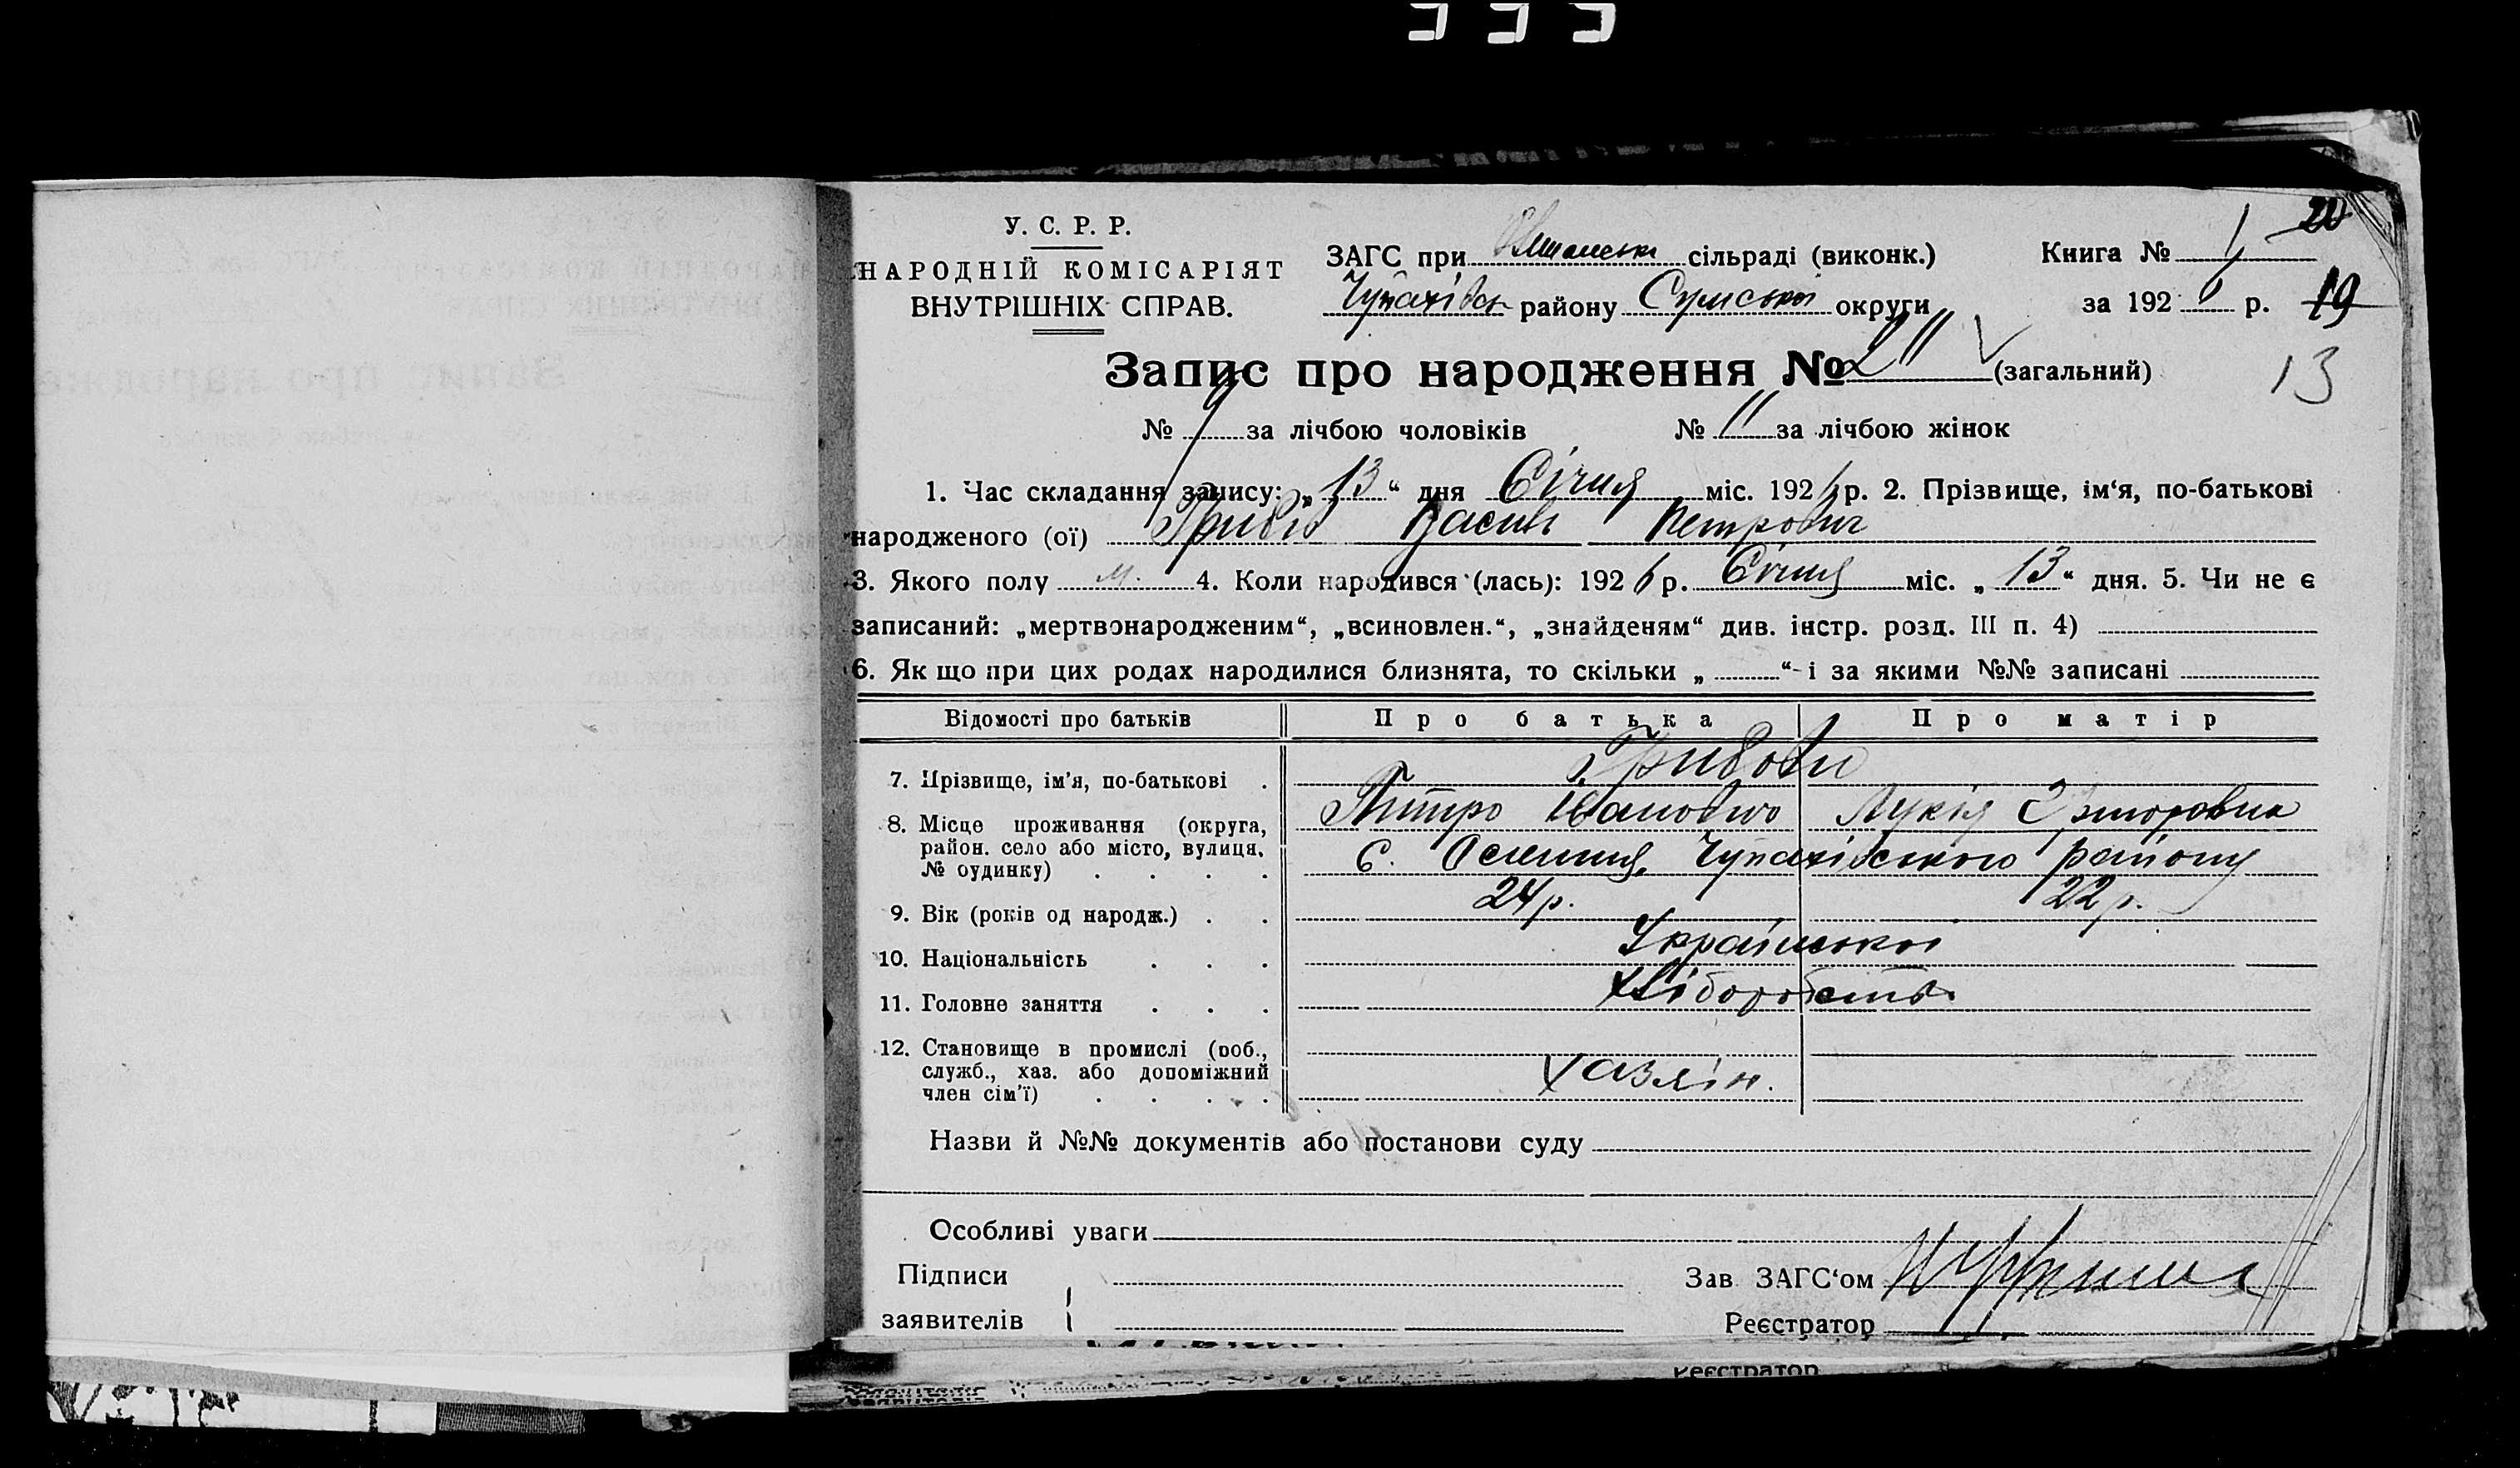 У. С. Р. Р.
НАРОДНІЙ КОМІСАРІЯТ
ВНУТРІШНІХ СПРАВ.
ЗАГС при сільраді (виконк.)
Чупахівськ району Сумської округи
Книга № 1
20
за 192 6 р. 19
13
Запис про народження № (загальний)
№ за лічбою чоловіків № за лічбою жінок
1. Час складання запису: „13“ дня Січня міс. 1926 р. 2. Прізвище, ім‘я, по-батькові
народженого (ої) Грибів Василь Петрович
3. Якого полу м. 4. Коли народився (лась): 1926 р. Січня міс. „13“ дня. 5. Чи не є
записаний: „мертвонародженим“, „всиновлен.“, „знайденям“ див. інстр. розд. III п. 4)
6. Як що при цих родах народилися близнята, то скільки „ “ і за якими №№ записані
Відомості про батьків Про батька Про матір
7. Прізвище, ім’я, по-батькові Грибови
Петро Іванович Лукія
8. Місце проживання (округа,
район. село або місто, вулиця,
№ будинку)
с. Чупахівського району
9. Вік (років од народж.) 24 р. 22 р.
10. Національність Української
11. Головне заняття Хліборобств
12. Становище в промислі (роб.,
служб., хаз. або допоміжний
член сім’ї)
Хазяїн.
Назви й №№ документів або постанови суду
Особливі уваги
Підписи
заявителів
Зав ЗАГС‘ом
Реєстратор
Реєстратор